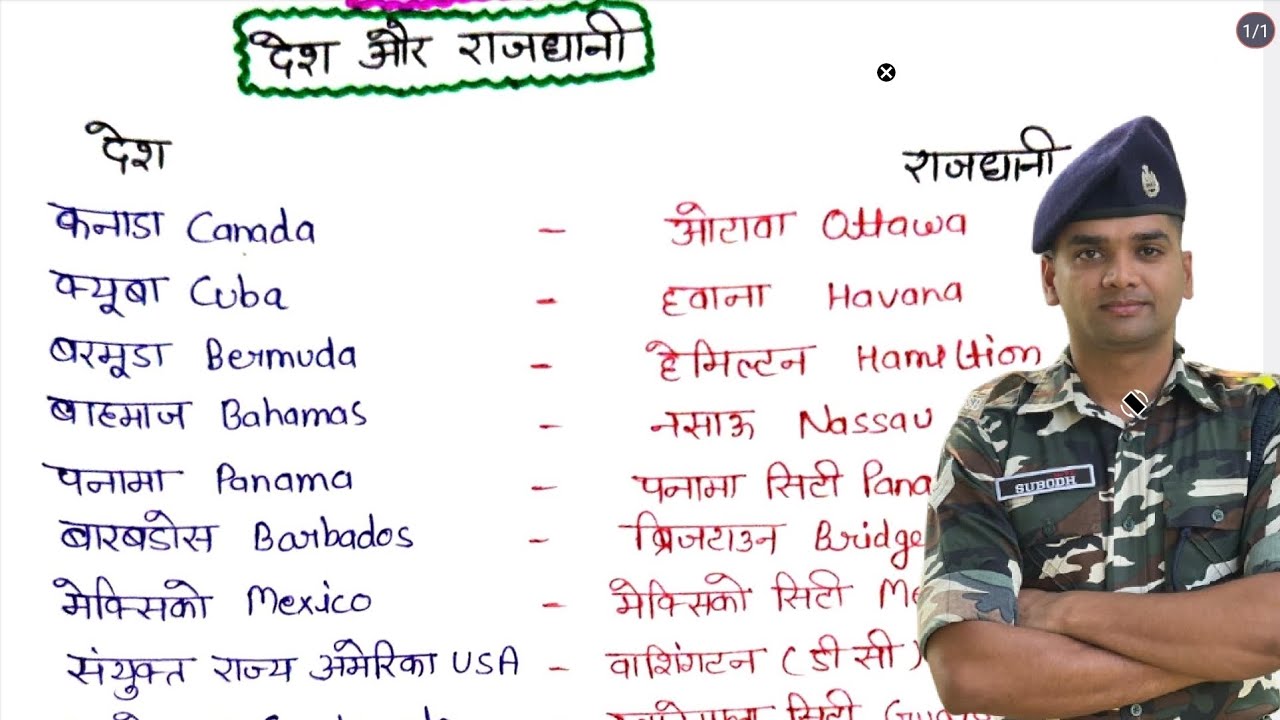 1/1
देश और राजधानी
देश राजधानी
कनाडा Canada - ओटावा Ottawa
क्यूबा Cuba - हवाना Havana
बरमूडा Bermuda - हेमिल्टन Hamiltion
बाहमाज Bahamas - नसाऊ Nassau
पनामा Panama - पनामा सिटी Pana
SUBODH
बारबडोस Barbados - ब्रिजटाउन Bridge
मेक्सिको Mexico - मेक्सिको सिटी Me
संयुक्त राज्य अमेरिका USA - वाशिंगटन (डी सी)
सिटी